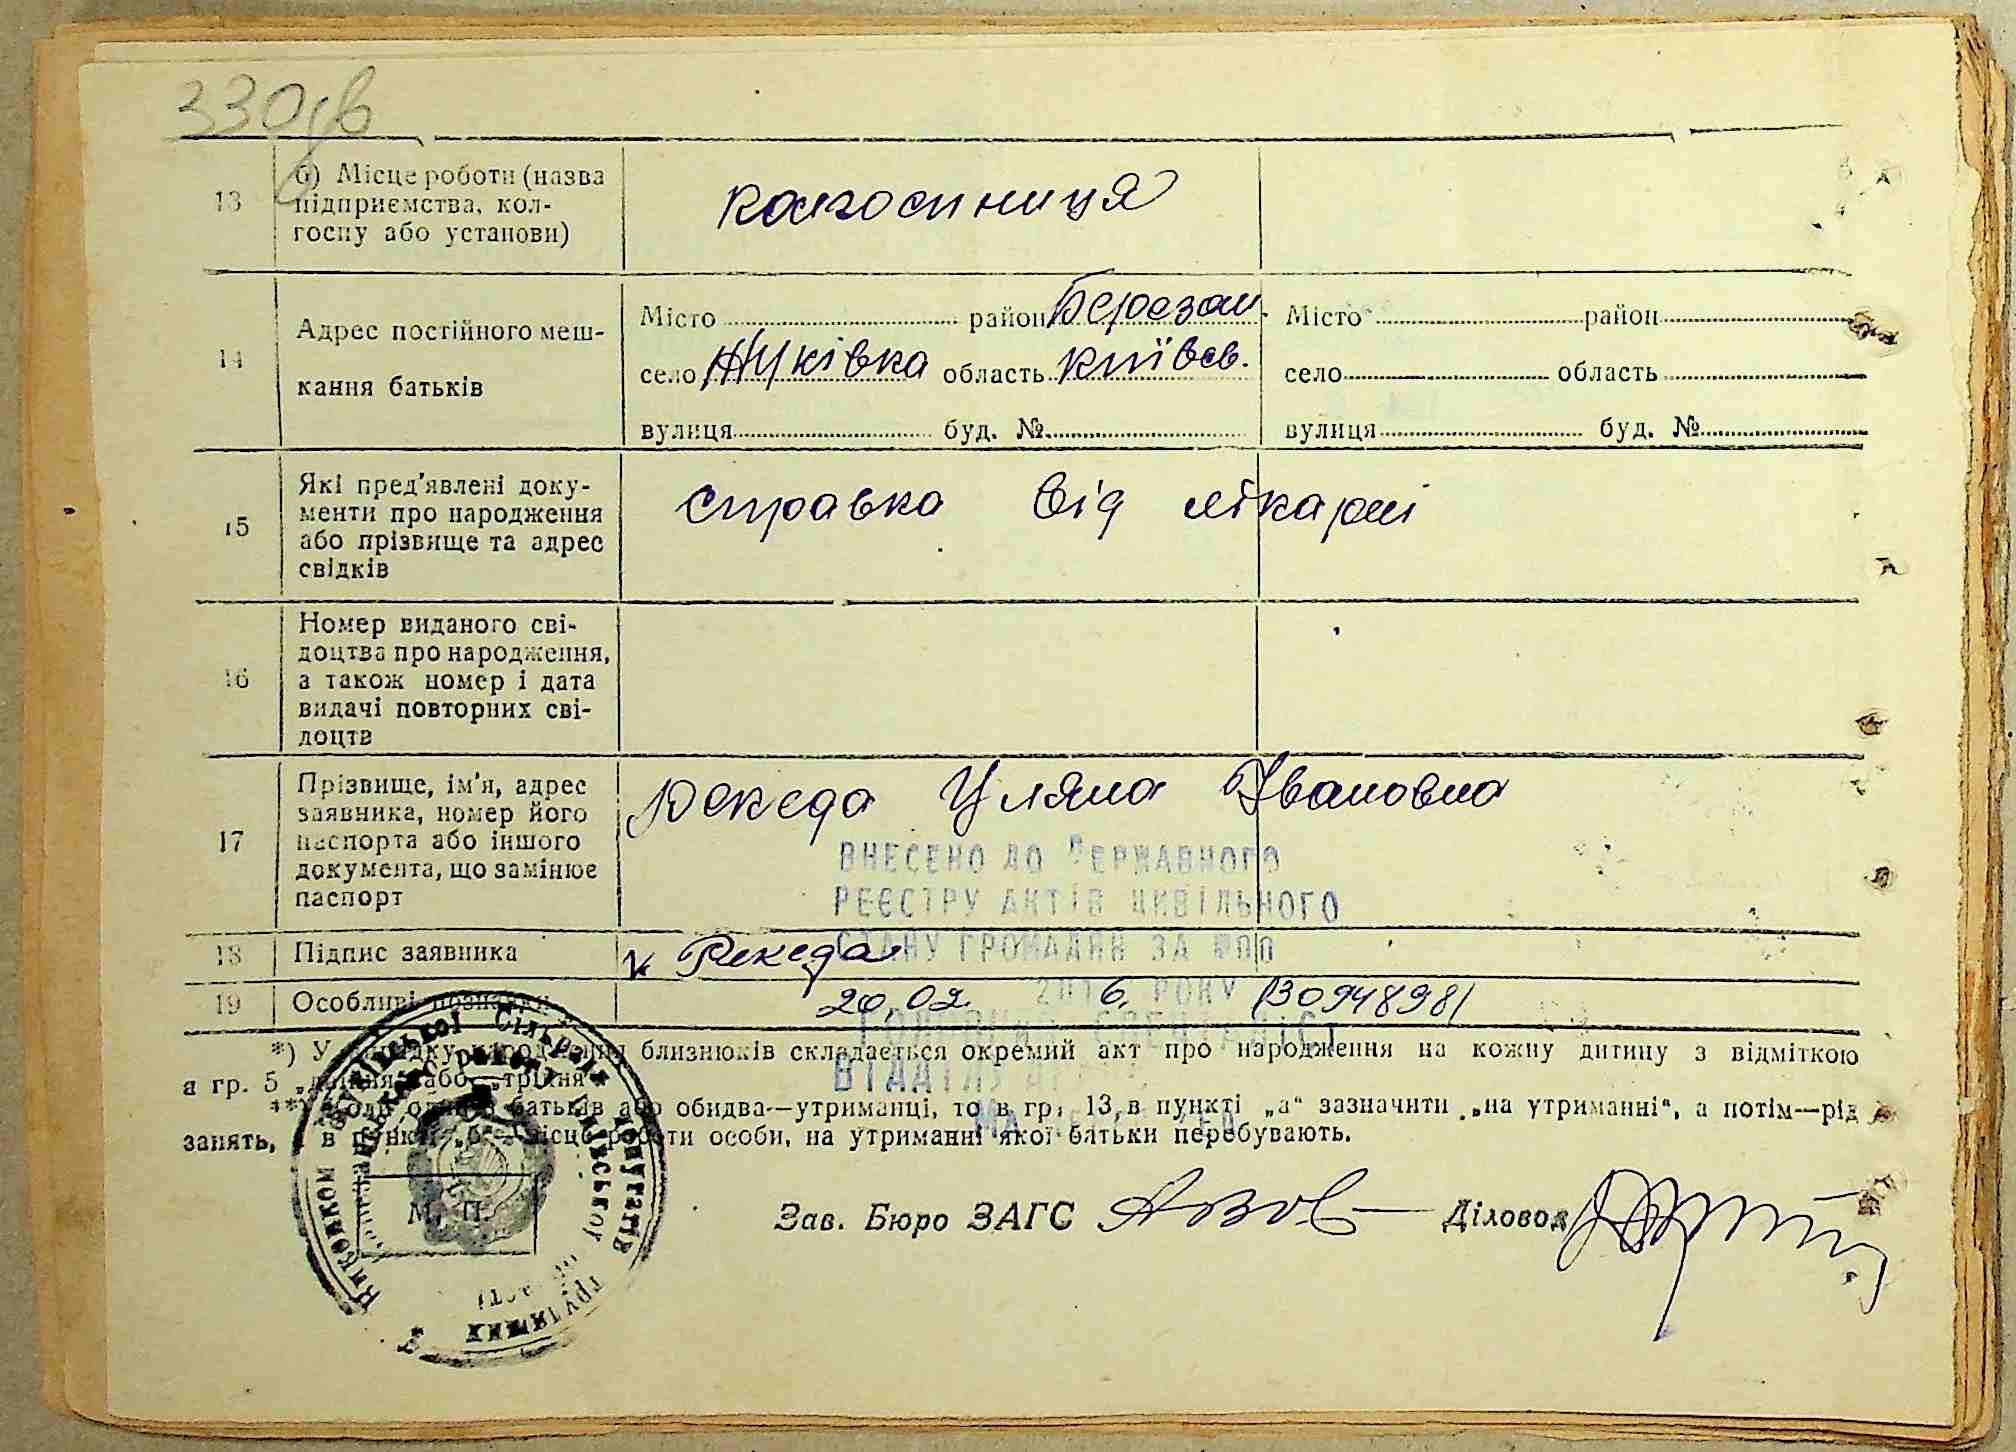 330зв
13 б) Місце роботи (назва
підприємства, кол-
госпу або установи)
колгоспниця
14 Адрес постійного меш-
кання батьків
Місто район Березан.
село Жуківка область Київсв.
вулиця буд. №
Місто район
село область
вулиця буд. №
15 Які пред'явлені доку-
менти про народження
або прізвище та адрес
свідків
справка від лікарні
16 Номер виданого сві-
доцтва про народження,
а також номер і дата
видачі повторних сві-
доцтв
17 Прізвище, ім'я, адрес
заявника, номер його
паспорта або іншого
документа, що замінює
паспорт
Рекеда Уляна Івановна
ВНЕСЕНО ДО ДЕРЖАВНОГО
РЕЄСТРУ АКТІВ ЦИВІЛЬНОГО
СТАНУ ГРОМАДЯН ЗА №
18 Підпис заявника
Рекеда
19 Особливі позначки
20.02. 2016. РОКУ (30948981
ГОЛОВНИЙ СПЕЦІАЛІСТ
ВІДДІЛУ
*) У випадку народження близнюків складається окремий акт про народження на кожну дитину з відміткою
в гр. 5 „двійня“ або „трійня“
**) Коли один з батьків або обидва—утриманці, то в гр. 13, в пункті „а“ зазначити „на утриманні“, а потім—рід
занять, а в пункті „б“—місце роботи особи, на утриманні якої батьки перебувають.
М. П.
Виконком Жуківської Сільради депутатів трудящих
Київської області
Зав. Бюро ЗАГС Діловод